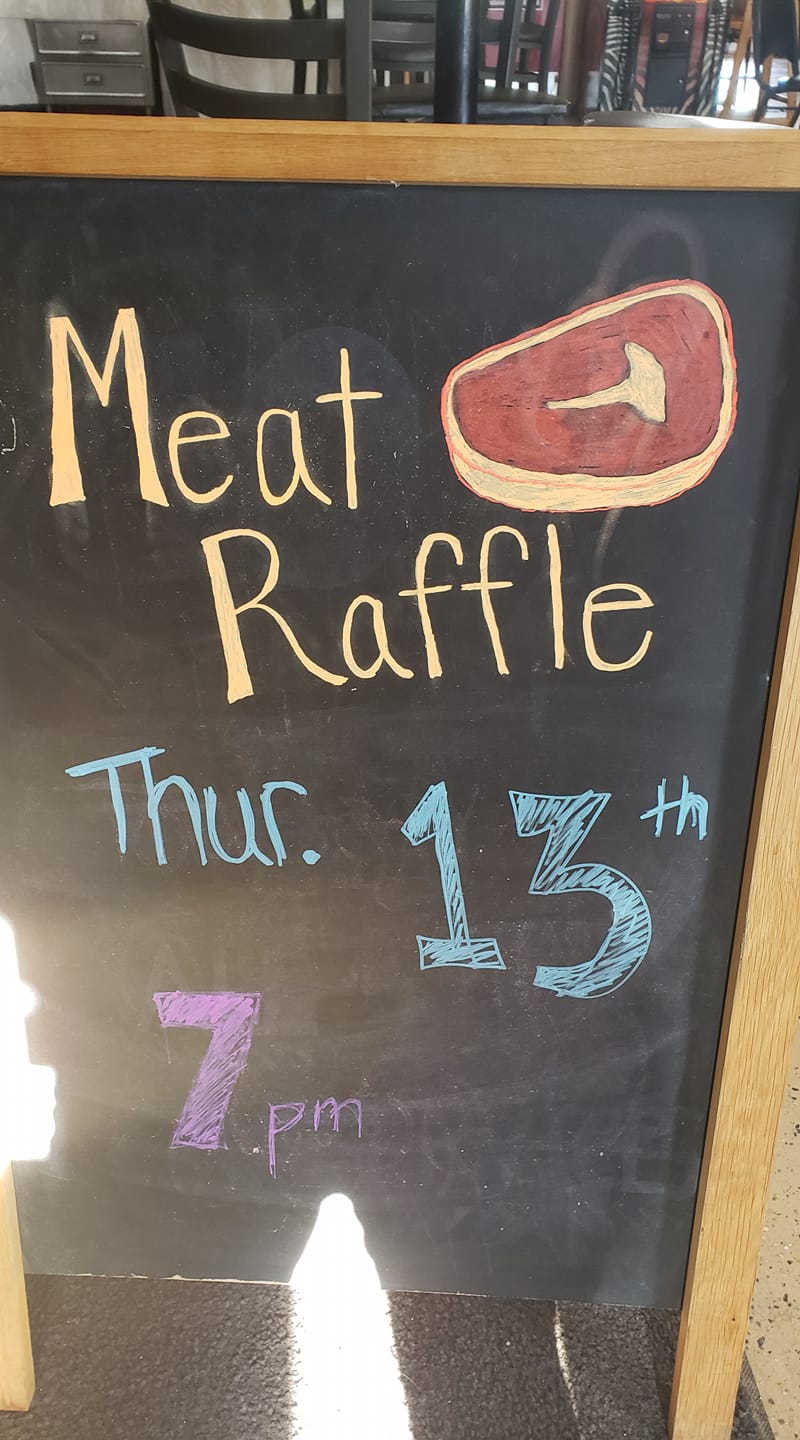 Meat
Raffle
Thur. 13th
7 pm